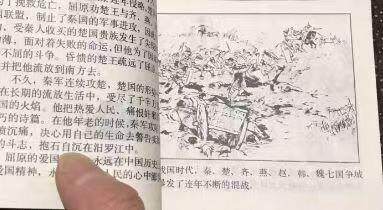 了挽救危亡，屈原劝楚王与齐、燕
国联盟，制止了秦国的军事进攻，因
，受秦人收买的楚国贵族发生了尖
的薄，面对着失败的命运，但他为了
不屈的斗争。昏愦的楚王疏远了屈
并把他流放到南方去。
不久，秦军连续攻楚，楚国的形
在长期的流放生活中，受尽了千辛
国的火焰。他把热爱人民、痛恨奸
朽的诗篇。在他年老的时候，秦军攻
愤沉痛，决心用自己的生命去警告
的斗志，抱石自沉在汨罗江中。
屈原的爱国 永远在中国历史
爱国精神，永 人民的心中
战国时代，秦、楚、齐、燕、赵、韩、魏七国争城
暴发了连年不断的混战。